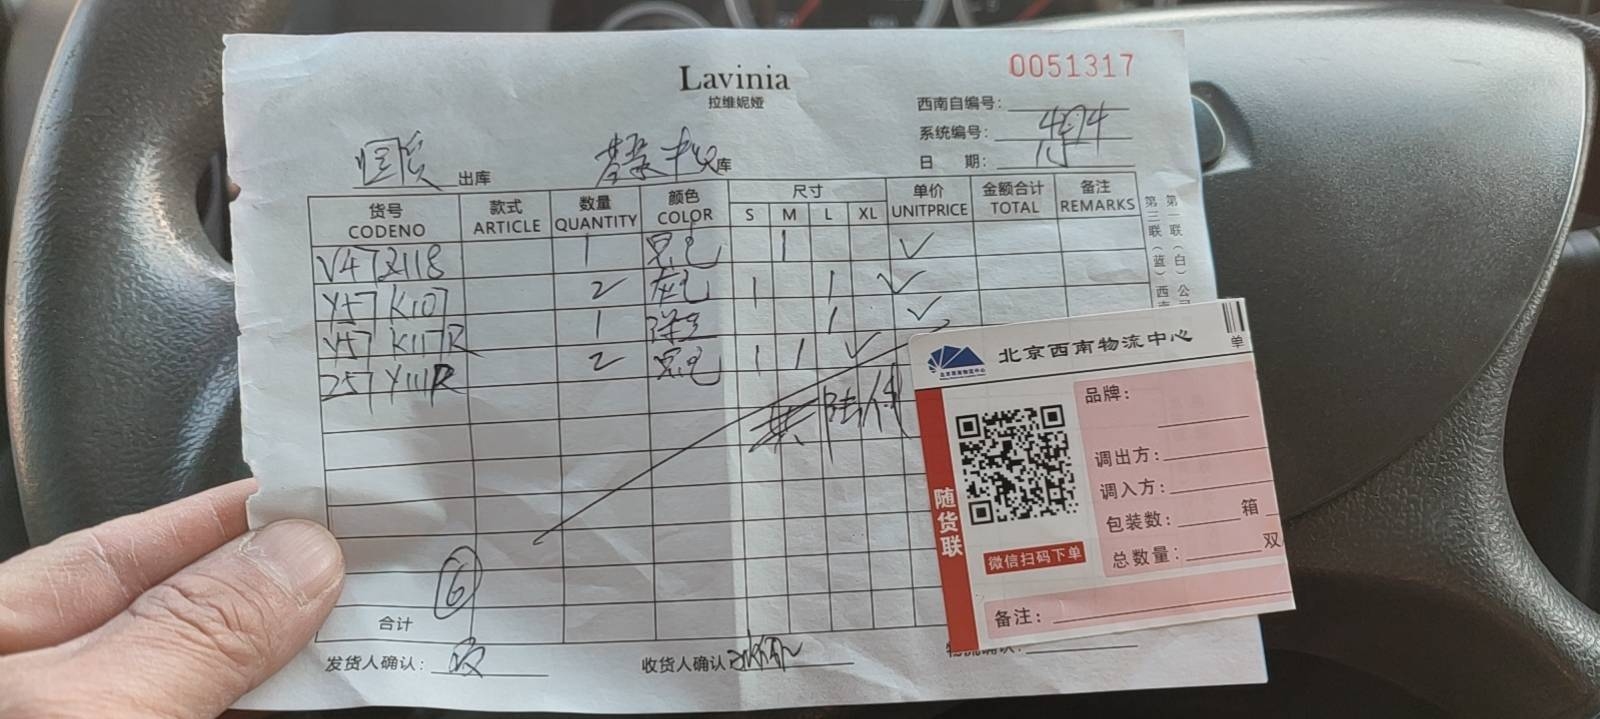 Lavinia
拉维妮娅
0051317
西南自编号:
系统编号:
日 期:
国贸 出库 库
货号 款式 数量 颜色 尺寸 单价 金额合计 备注
CODENO ARTICLE QUANTITY COLOR S M L XL UNITPRICE TOTAL REMARKS
V473118 1 黑色 1 ✓
Y57K107 2 灰色 1 1 ✓
Y57K117R 1 1 ✓
257Y111R 2 黑色 1 1 ✓
共陆件
6
合计
发货人确认:
收货人确认:
第一联(白)
第三联(蓝)
北京西南物流中心
单
随货联
微信扫码下单
品牌:
调出方:
调入方:
包装数: 箱
总数量: 双
备注: